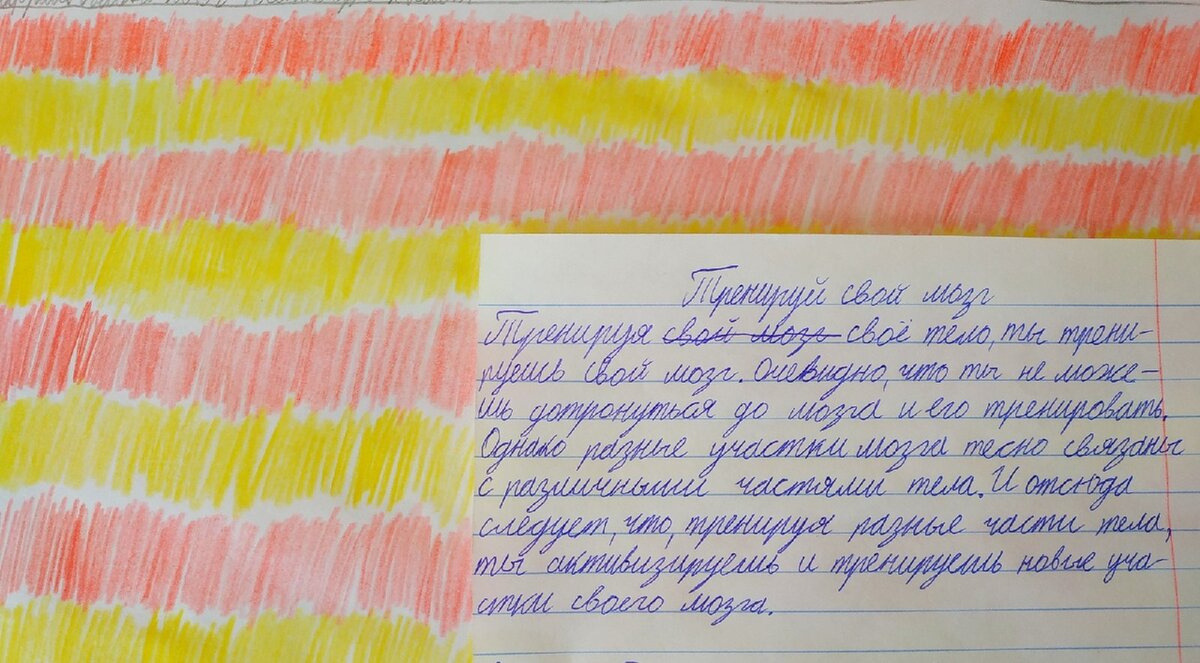 Тренируй свой мозг
Тренируя свой мозг своё тело, ты трени-
руешь свой мозг. Очевидно, что ты не може-
шь дотронуться до мозга и его тренировать.
Однако разные участки мозга тесно связаны
с различными частями тела. И отсюда
следует, что, тренируя разные части тела,
ты активизируешь и тренируешь новые уча-
стки своего мозга.